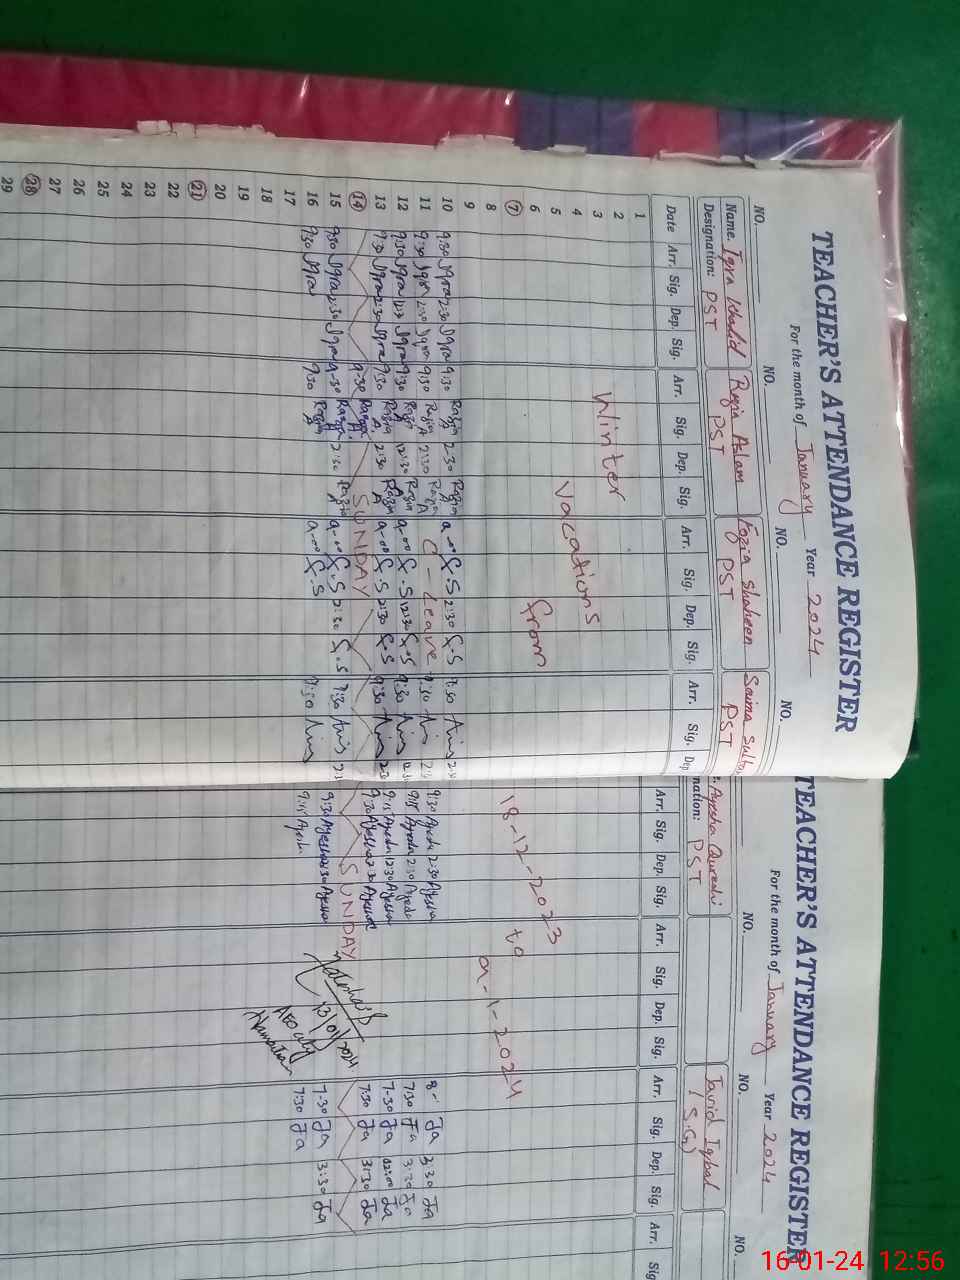 TEACHER'S ATTENDANCE REGISTER
For the month of January Year 2024
NO. NO. NO. NO.
Name. Iqra Khalid Razia Aslam Fozia Shaheen Saima Sultan
Designation: PST PST PST PST
Date Arr. Sig. Dep. Sig. Arr. Sig. Dep. Sig. Arr. Sig. Dep. Sig. Arr. Sig. Dep
1
2
3 Winter
4
5 Vacations
6 from
7
8
9
10 9:30 Iqra 2:30 Iqra 9:30 Razia 2:30 Razia 9-00 F.S 2:30 F.S 9:30
11 9:30 Iqra 2:30 Iqra 9:30 Razia 2:30 Razia C-Leave 9:30
12 9:30 Iqra 12:30 Iqra 9:30 Razia 12:30 Razia 9-00 F.S 12:30 F.S 9:30
13 9:30 Iqra 2:30 Iqra 9:30 Razia 2:30 Razia 9-00 F.S 2:30 F.S 9:30
14 9:30 Razia SUNDAY
15 9:30 Iqra 2:30 Iqra 9:30 Razia 2:30 Razia 9-00 F.S 2:30 F.S 9:30
16 9:30 Iqra 9:30 Razia 9-00 F.S 9:30
17
18
19
20
21
22
23
24
25
26
27
28
29
TEACHER'S ATTENDANCE REGISTER
For the month of January Year 2024
NO. NO. NO.
Ayesha Qureshi Javid Iqbal
nation: PST (S.G)
Arr. Sig. Dep. Sig. Arr. Sig. Dep. Sig. Arr. Sig. Dep. Sig. Arr.
18-12-2023 to
9-1-2024
9:30 Ayesha 2:30 Ayesha 8- Ja 3:30 Ja
9:15 Ayesha 2:30 Ayesha 7:30 Ja 3:30 Ja
9:15 Ayesha 12:30 Ayesha 7-30 Ja 12:00 Ja
9:30 Ayesha 2:30 Ayesha 7:30 Ja 3:30 Ja
SUNDAY
9:30 Ayesha 2:30 Ayesha 7-30 Ja 3:30 Ja
9:15 Ayesha 7:30 Ja
13/01/2024
AEO city
16-01-24 12:56